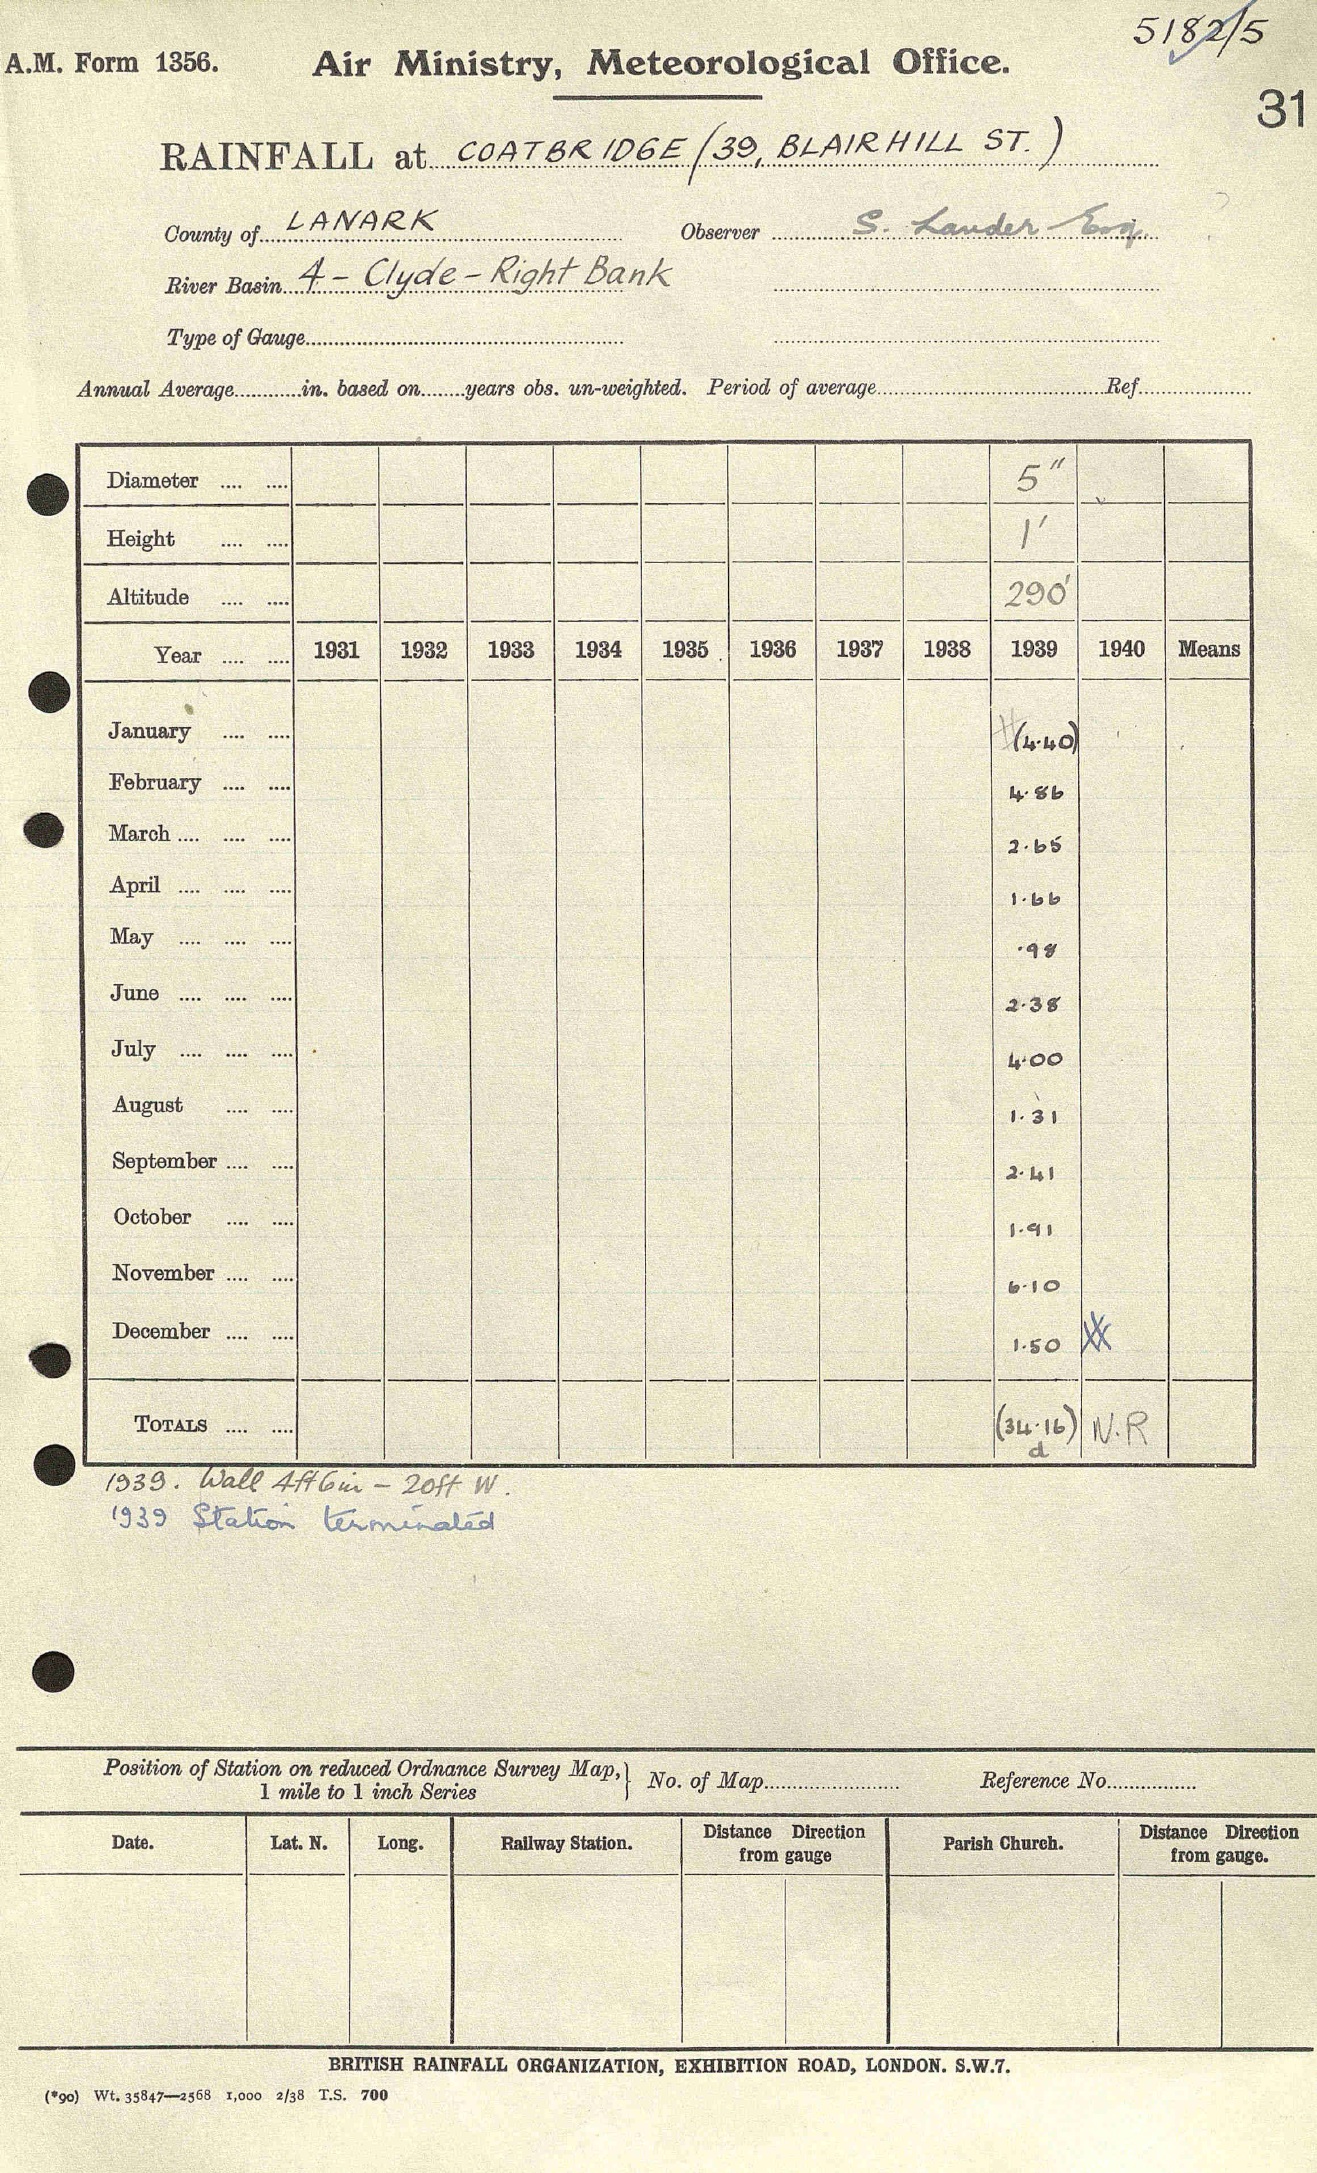 5182/5
A.M. Form 1356. Air Ministry, Meteorological Office.
31
RAINFALL at COATBRIDGE (39, BLAIRHILL ST.)
County of LANARK Observer S. Lauder Esq.
River Basin 4 - Clyde - Right Bank
Type of Gauge
Annual Average in. based on years obs. un-weighted. Period of average Ref.
Diameter 5"
Height 1'
Altitude 290'
Year 1931 1932 1933 1934 1935 1936 1937 1938 1939 1940 Means
January (4.40)
February 4.86
March 2.65
April 1.66
May .98
June 2.38
July 4.00
August 1.31
September 2.41
October 1.91
November 6.10
December 1.50
TOTALS (34.16) N.R
d
1939. Wall 4ft 6in - 20ft W.
1939 Station terminated
Position of Station on reduced Ordnance Survey Map, } No. of Map Reference No.
1 mile to 1 inch Series
Date. Lat. N. Long. Railway Station. Distance Direction from gauge Parish Church. Distance Direction from gauge.
BRITISH RAINFALL ORGANIZATION, EXHIBITION ROAD, LONDON. S.W.7.
(*90) Wt. 35847—2568 1,000 2/38 T.S. 700